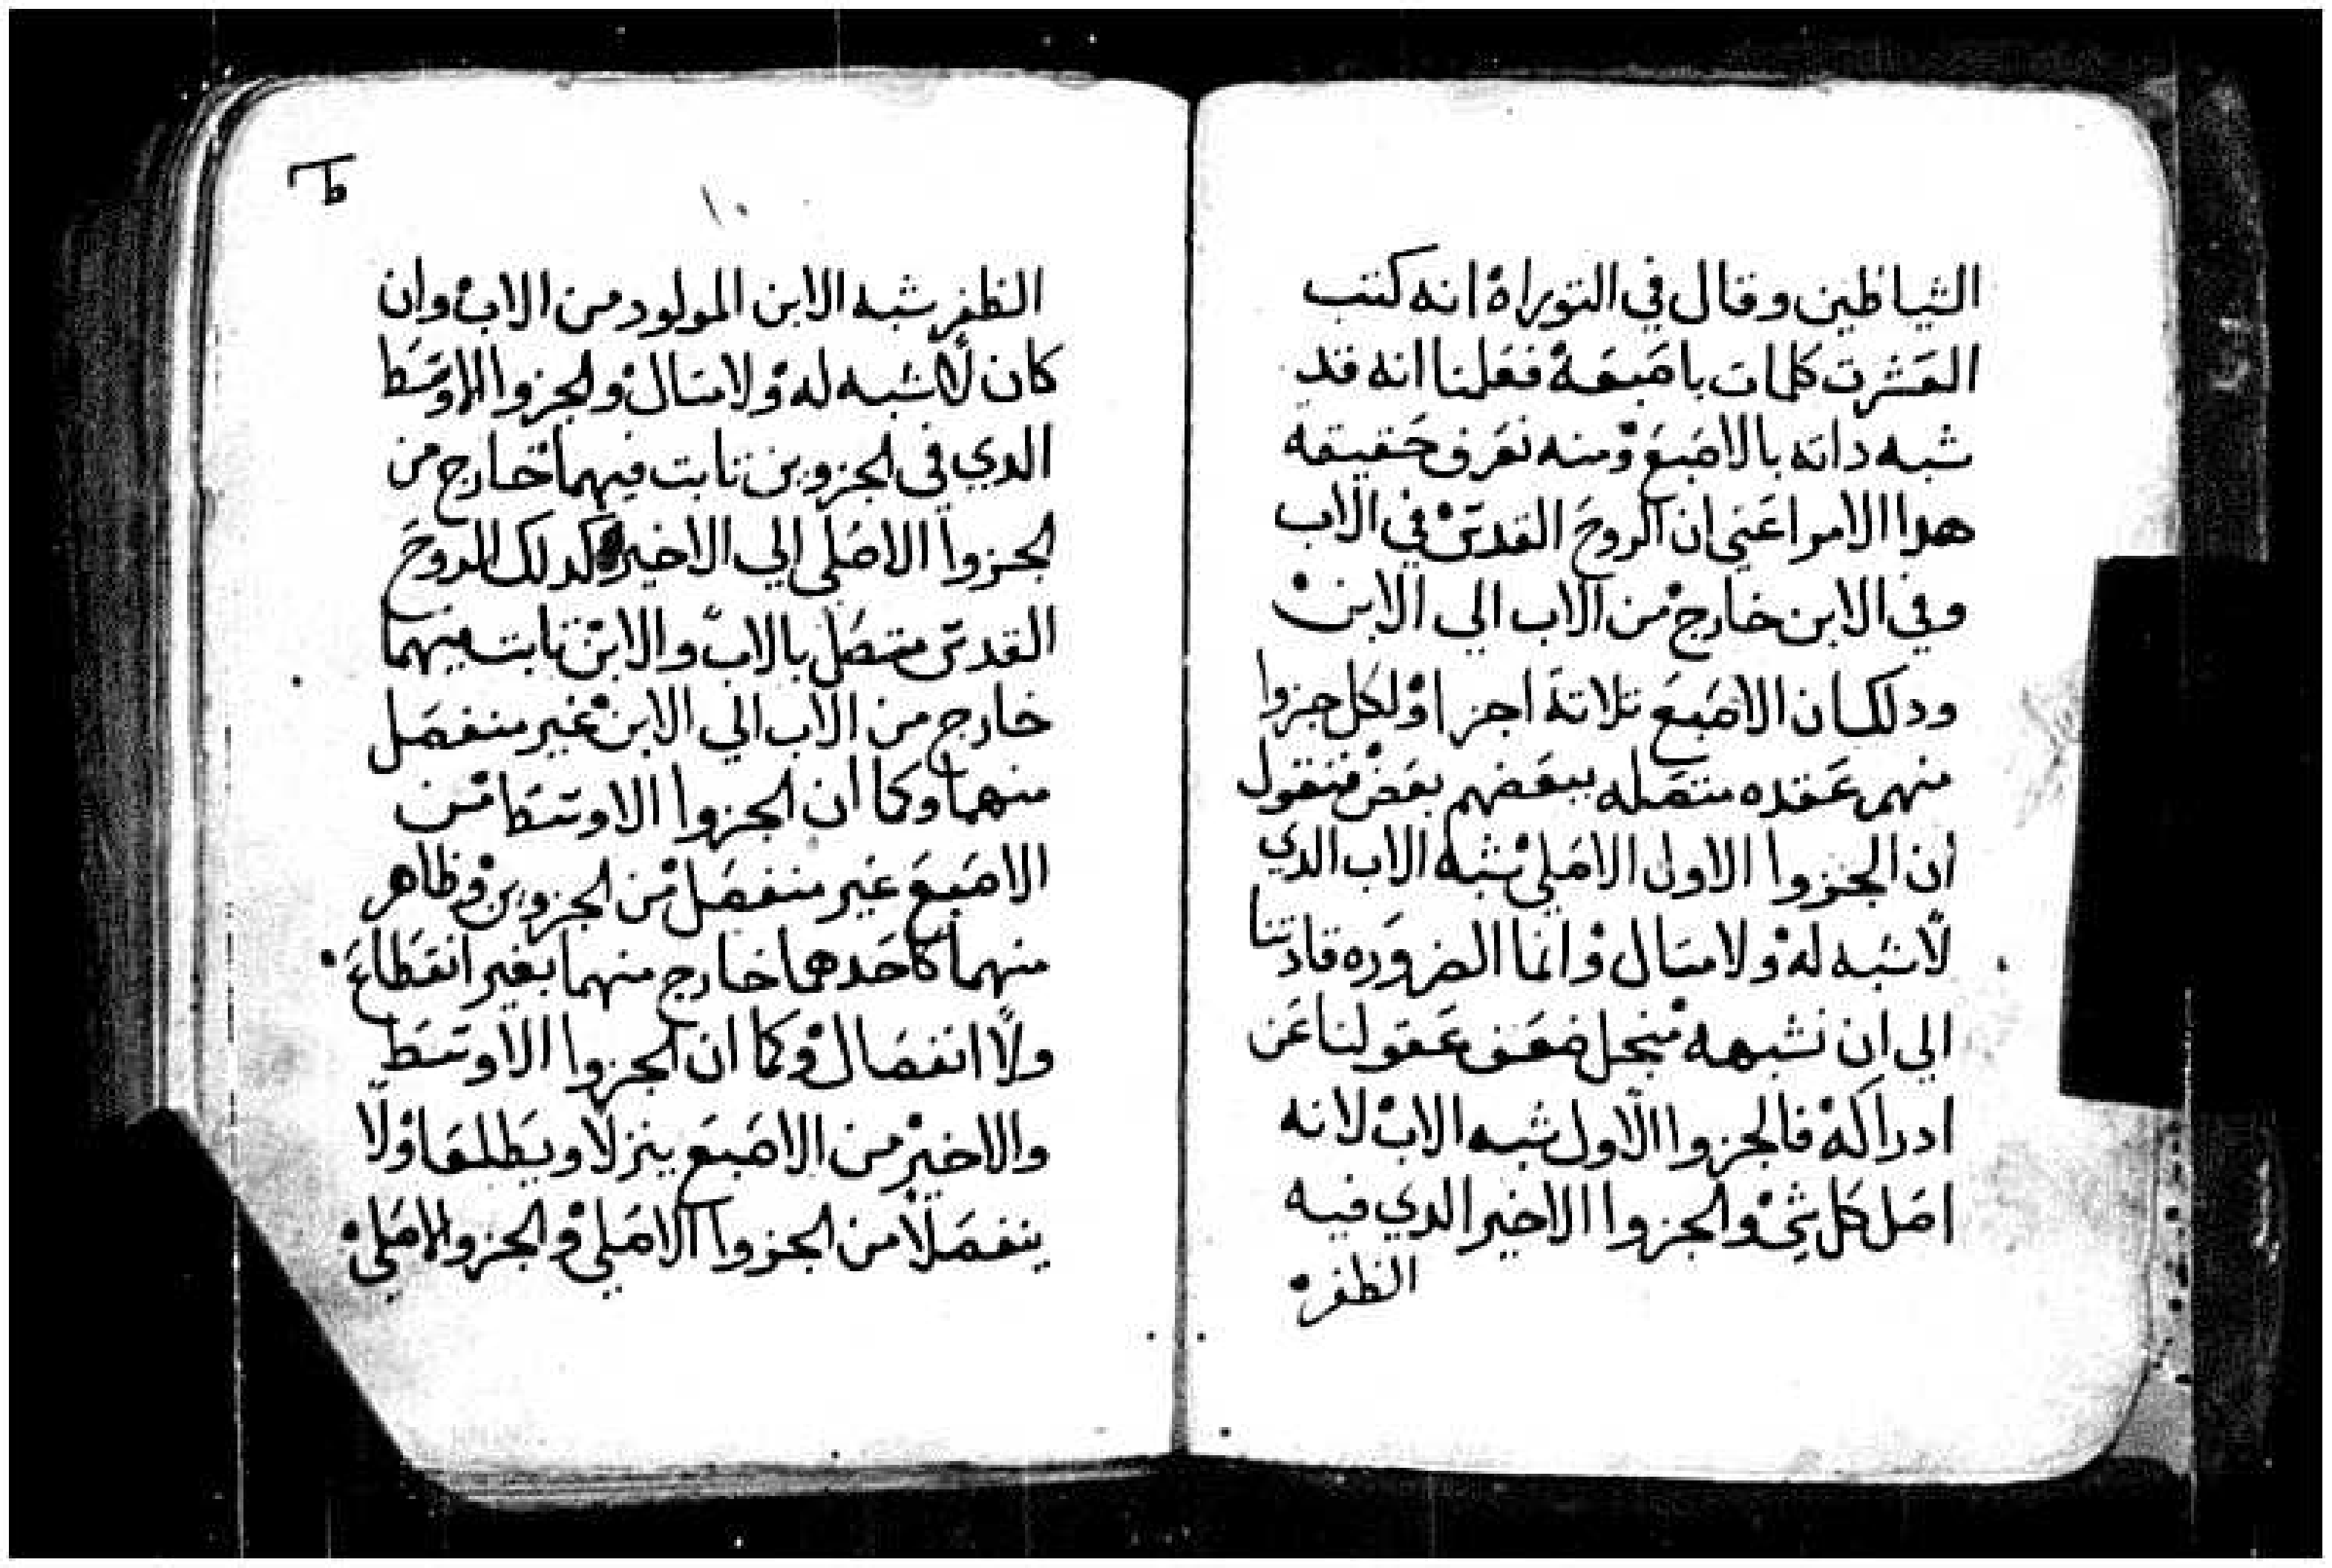 الشياطين وقال في التوراه انه كتب
العشرت كلمات باصبعه فعلمنا انه قد
شبه داته بالاصبع ومنه نعرف حقيقة
هدا الامر اعني ان الروح القدس في الاب
وفي الابن خارج من الاب الي الابن
ودلك ان الاصبع تلاتة اجزا ولكل جزوا
منهم عقده متصله ببعضهم بعض فنقول
ان الجزوا الاول الاصلي شبه الاب الدي
لا شبه له ولا متال وانما الضروره قادتنا
الي ان نشبهه منجل ضعف عقولنا عن
ادراكه فالجزوا الاول شبه الاب لانه
اصل كل شي والجزوا الاخير الدي فيه
الظفر
ط
١٠
الظفر شبه الابن المولود من الاب وان
كان لا شبه له ولا متال والجزوا الاوسط
الدي في الجزوين تابت فيهما خارج من
الجزوا الاصلي الي الاخير كدلك الروح
القدس متصل بالاب والابن تابت فيهما
خارج من الاب الي الابن غير منفصل
منهما وكما ان الجزوا الاوسط من
الاصبع غير منفصل من الجزوين وظاهر
منهما كاحدهما خارج منهما بغير انقطاع
ولا انفصال وكما ان الجزوا الاوسط
والاخير من الاصبع ينزلا ويطلعا ولا
ينفصلا من الجزوا الاصلي والجزو الاصلي